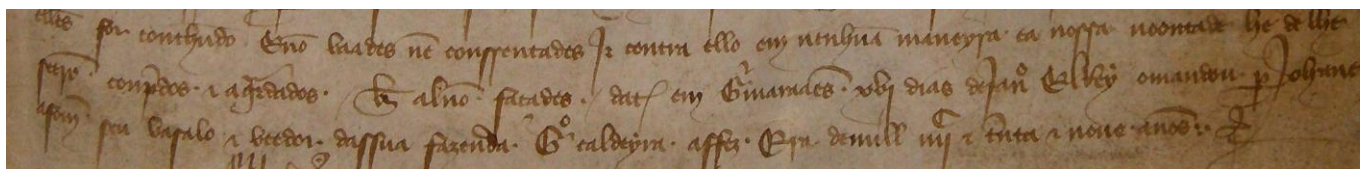 elles for contheudo E nõ vaades nẽ conssentades Jr contra ello em nẽnhũa maneyra ca nossa voontade he de lhe
seerẽ conpridos ⁊ agardados. al nõ façades. dat em Gujmaraães xbj dias de Janro ElRey o mandou per Johane
afom̃ seu vasalo ⁊ veedor dassua fazenda Gº caldeyra affez. Era de mill iiijc ⁊ trinta ⁊ noue anos